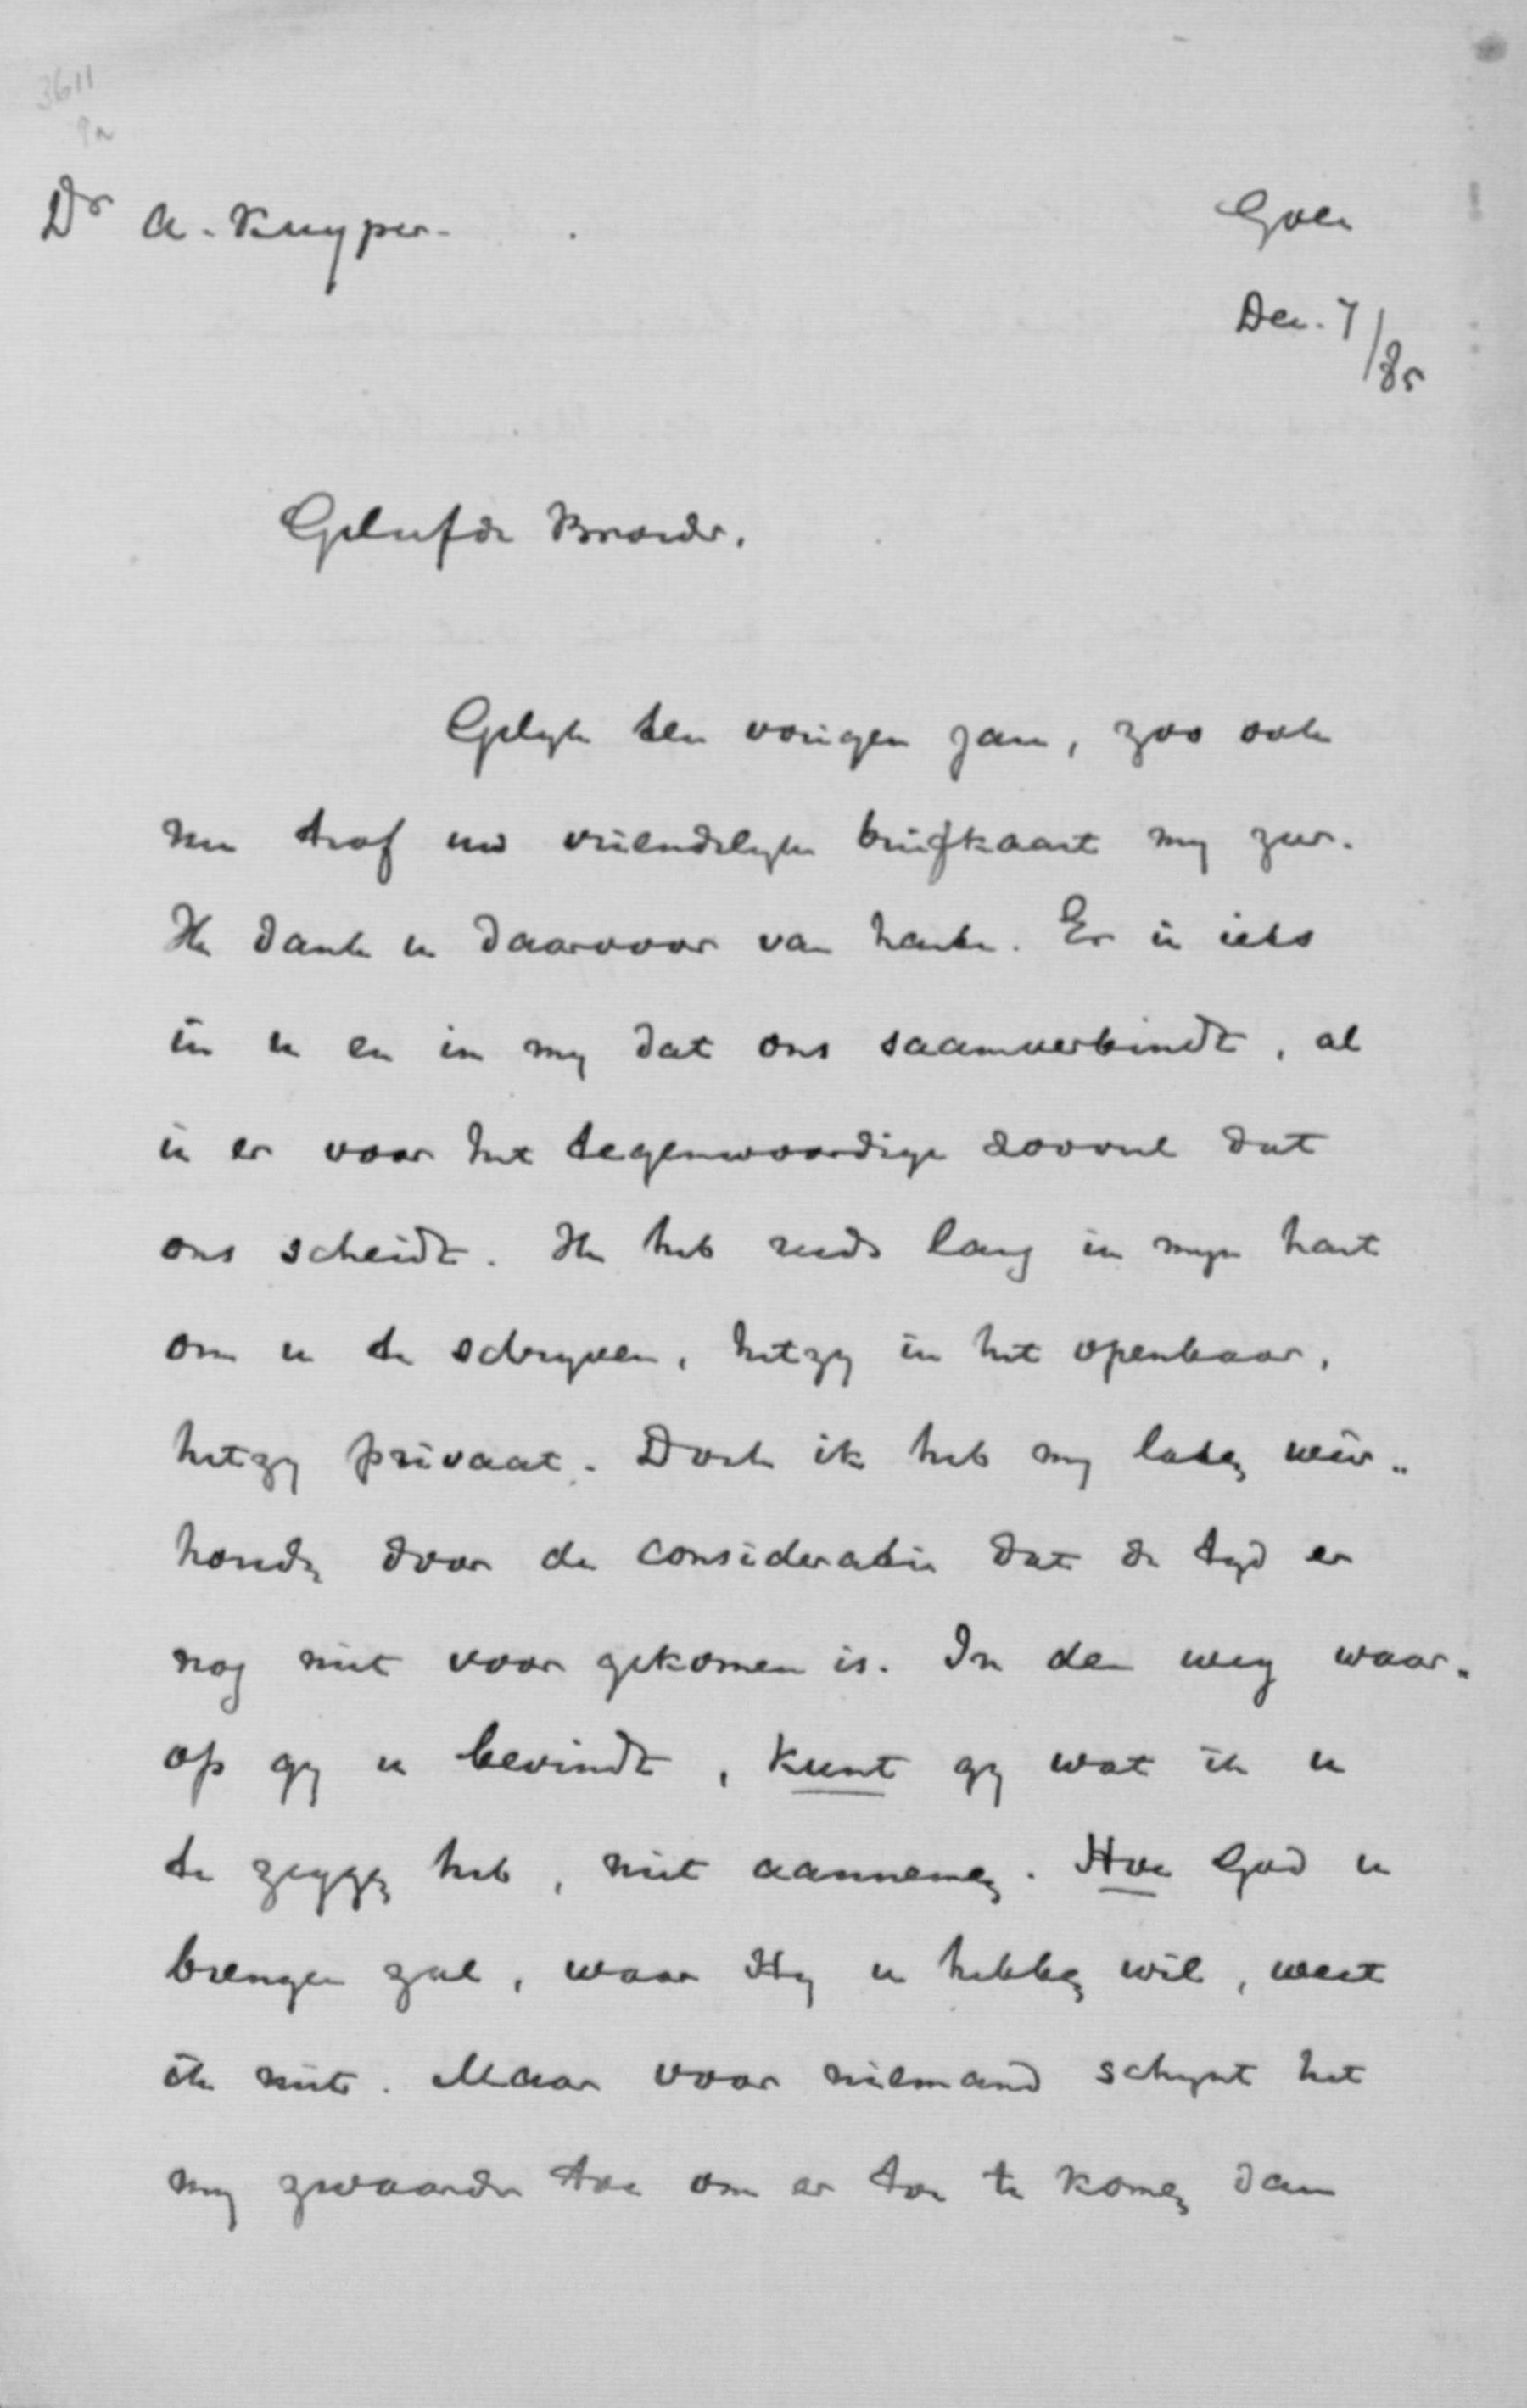 3611
Dr A. Kuyper.
Goes
Dec. 7/85
Geliefde Broeder,
Gelyk ten vorigen jare, zoo ook
nu trof uw vriendelyke briefkaart my zeer.
Ik dank u daarvoor van harte. Er is iets
in u en in my dat ons saamverbindt, al
is er voor het tegenwoordige zooveel dat
ons scheidt. Ik heb reeds lang in myn hart
om u te schryven, hetzy in het openbaar,
hetzy privaat. Doch ik heb my laten weer-
houden door de consideratie dat de tyd er
nog niet voor gekomen is. In den weg waar-
op gy u bevindt, kunt gy wat ik u
te zeggen heb, niet aannemen. Hoe God u
brengen zal, waar Hy u hebben wil, weet
ik niet. Maar voor niemand schynt het
my zwaarder toe om er toe te komen dan